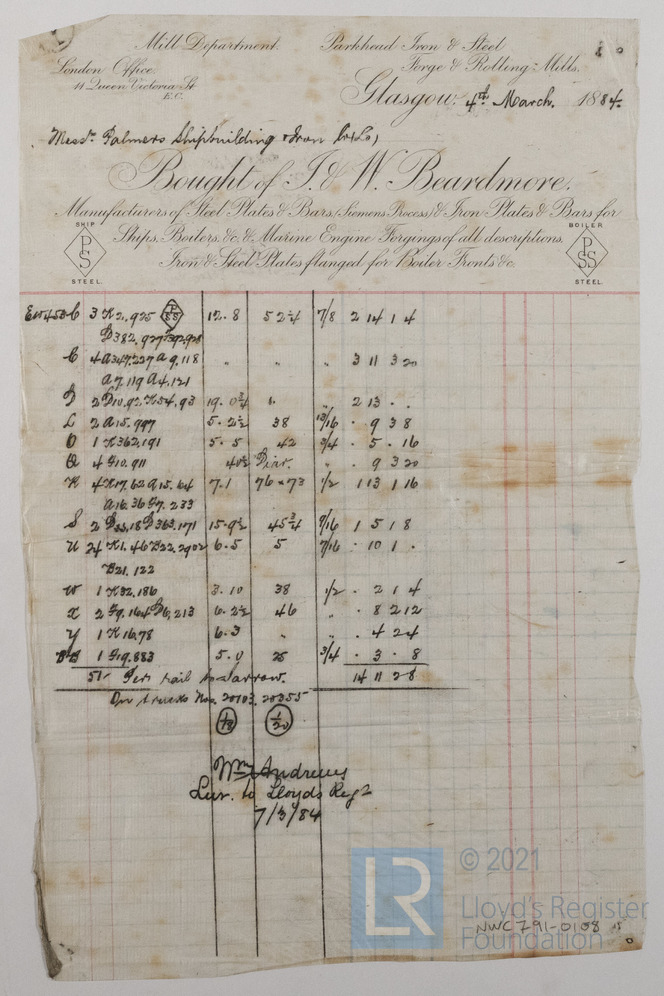 Mill Department. Parkhead Iron & Steel
London Office Forge & Rolling Mills.
11 Queen Victoria St
E.C.
Glasgow. 4th March. 1884.
Messrs Palmers Shipbuilding & Iron Co Ld,
Bought of I. & W. Beardmore.
Manufacturers of Steel Plates & Bars (Siemens Process) & Iron Plates & Bars for
Ships, Boilers, &c. & Marine Engine Forgings of all descriptions.
Iron & Steel Plates flanged for Boiler Fronts &c
SHIP
PS
STEEL.
BOILER
PSS
STEEL
C 3 K2.925 12.8 52¼ 7/8 2 14 1 4
C 4 A347.227 A9.118 " " " 3 11 3 20
A7.119 A4.121
2 D10.92 K54.93 19.0¾ " " 2 13 . .
L 2 A15.997 5.2½ 38 13/16 . 9 3 8
O 1 K362.191 5.5 42 3/4 . 5 . 16
Q 4 G10.911 40½ Diar. " . 9 3 20
K 4 K17.62 A15.64 7.1 76 x 73 1/2 1 13 1 16
A16.36 G7.233
S 2 D35.18 D363.171 15.9½ 45¾ 9/16 1 5 1 8
U 24 K1.46 B22.2902 6.5 5 7/16 . 10 1 .
B21.122
W 1 K32.186 3.10 38 1/2 . 2 1 4
X 2 G9.164 D6.213 6.2½ 46 " . 8 2 12
Y 1 K16.78 6.3 " " . 4 2 4
1 G19.883 5.0 25 3/4 . 3 . 8
51 Per rail to Jarrow. 14 11 2 8
On trucks Nos. 20103. 20355
1/18 1/20
Wm Andrews
Sur. to Lloyds Regr
7/3/84
LR
© 2021
Lloyd's Register
Foundation
NWC791-0108